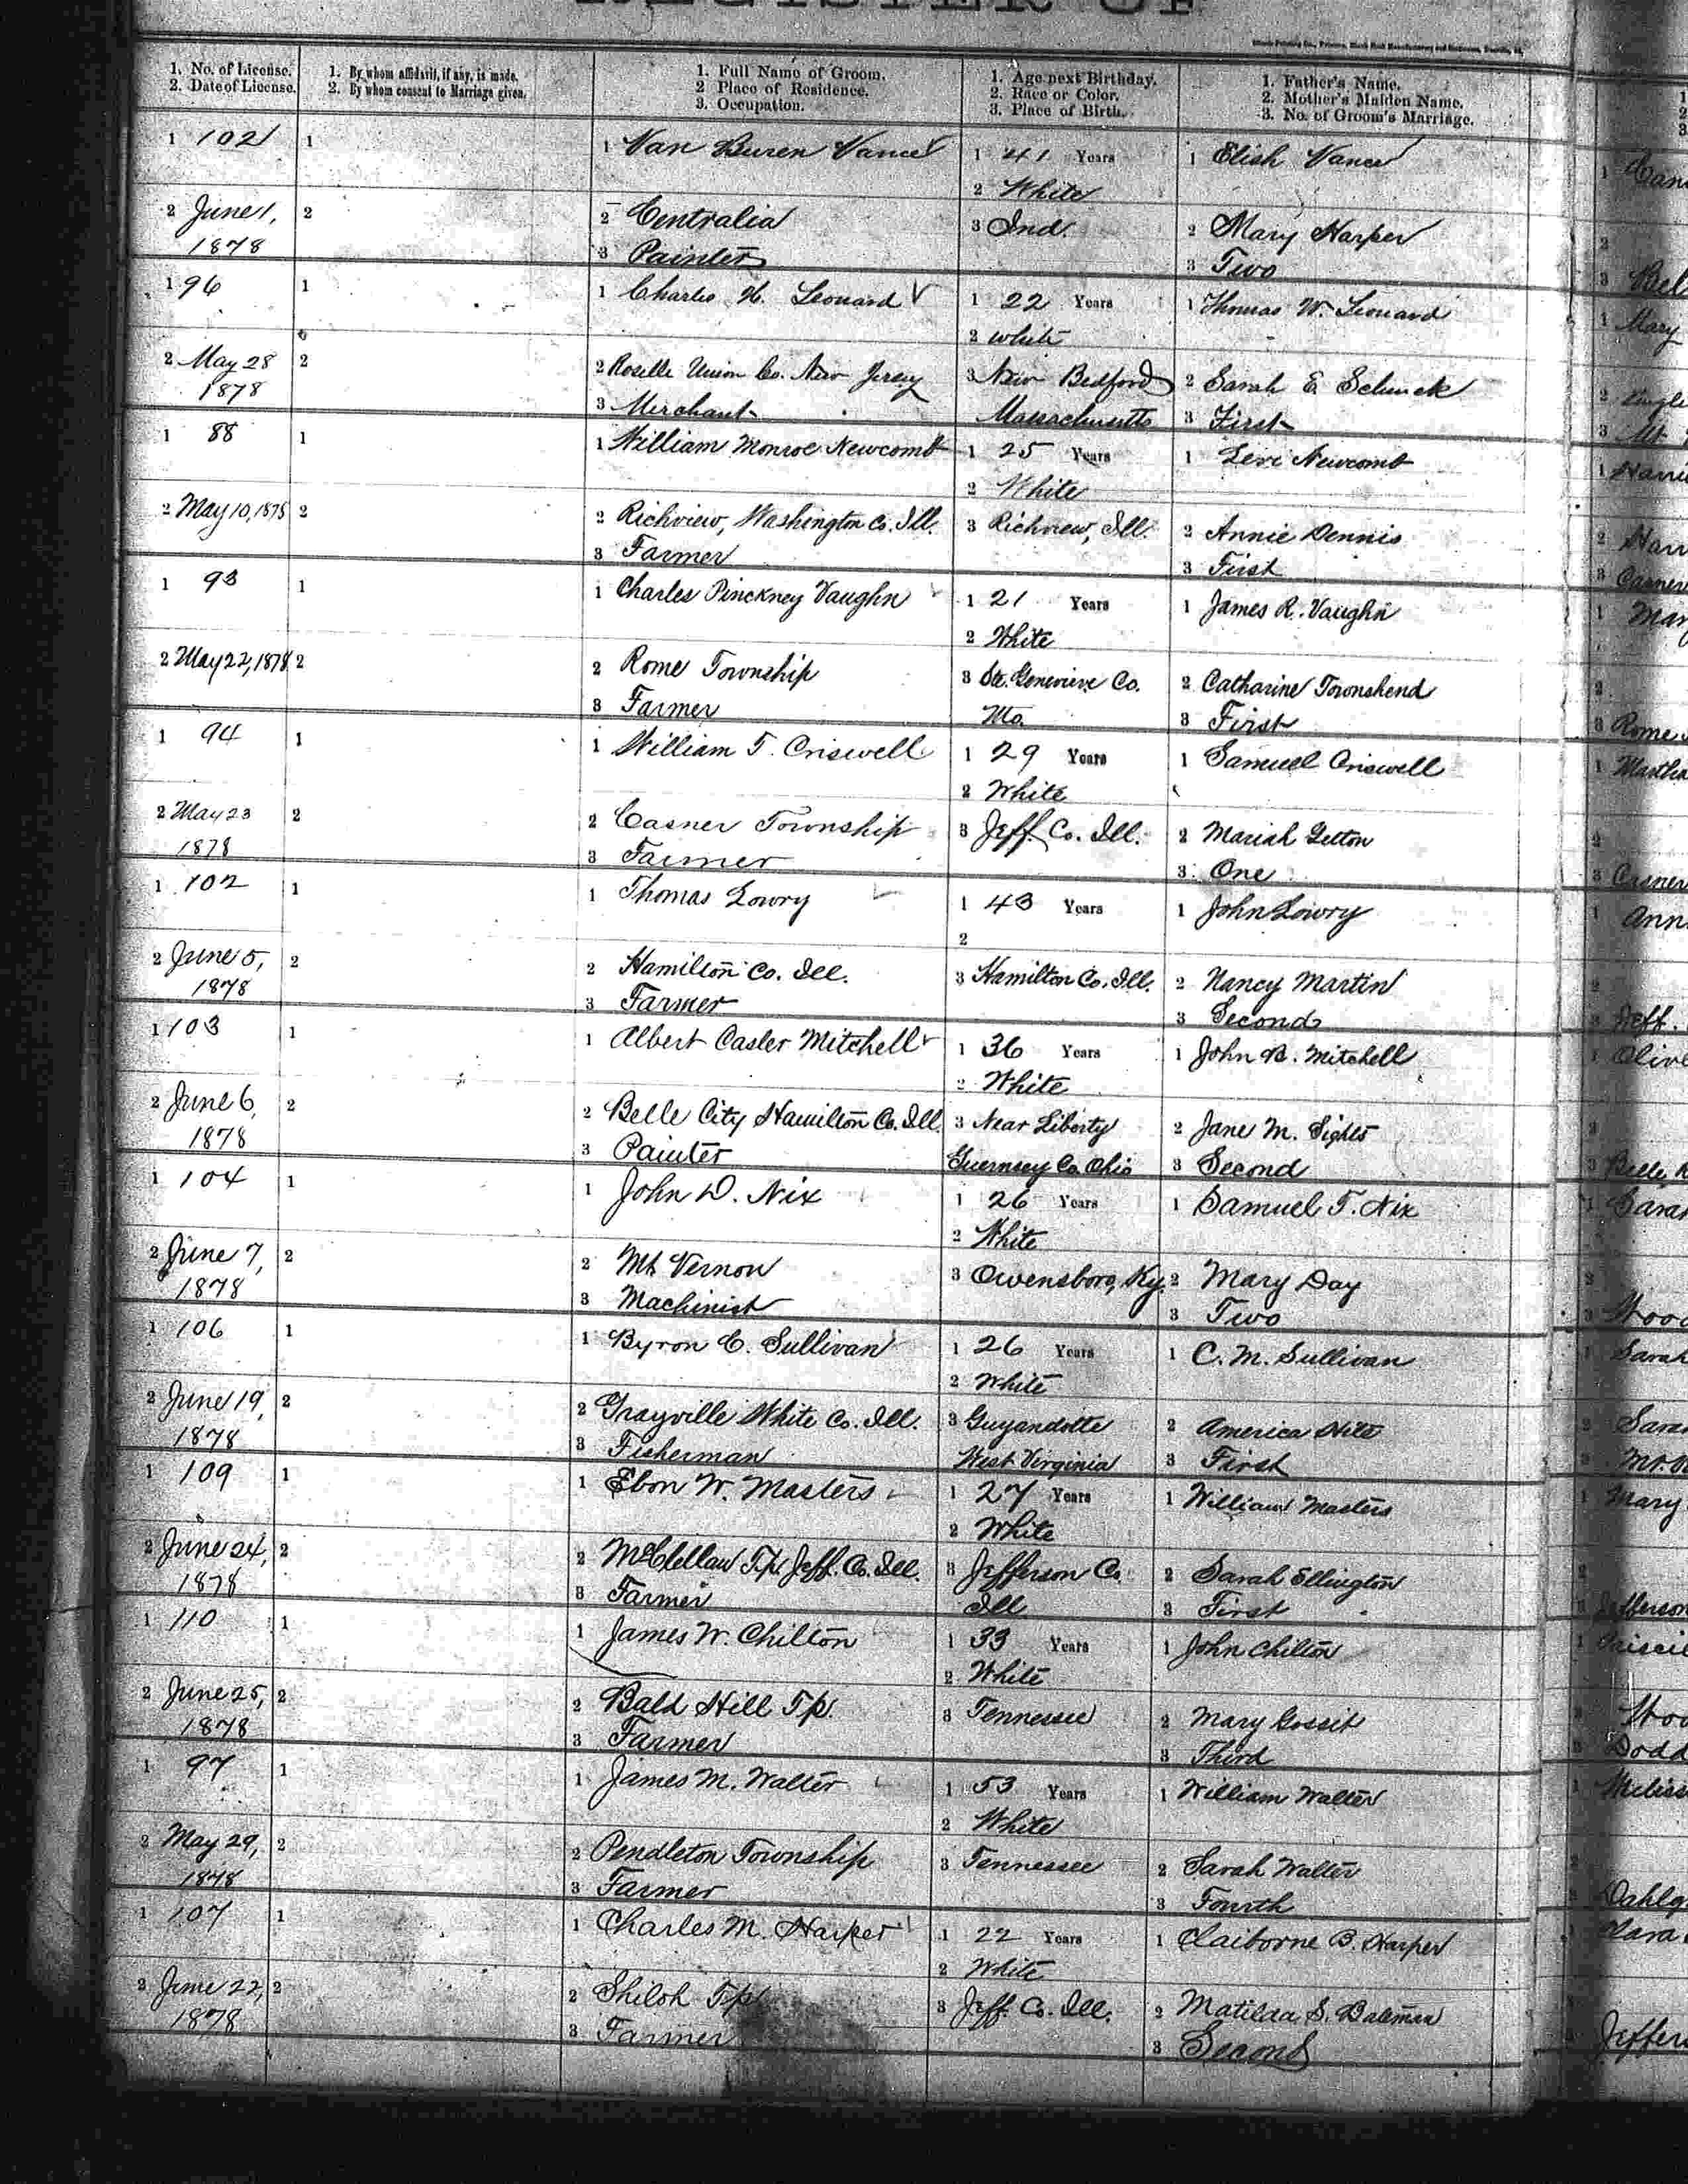 REGISTER OF
1. No. of License. 1. By whom affidavit, if any, is made. 1. Full Name of Groom. 1. Age next Birthday. 1. Father's Name.
2. Date of License. 2. By whom consent to Marriage given. 2 Place of Residence. 2. Race or Color. 2. Mother's Maiden Name.
3. Occupation. 3. Place of Birth. 3. No. of Groom's Marriage.
1 102 1 1 Van Buren Vance 1 41 Years 1 Elish Vance
2 White
2 June 1, 2 2 Centralia 3 Ind. 2 Mary Harper
1878 3 Painter 3 Two
1 96 1 1 Charles H. Leonard 1 22 Years 1 Thomas W. Leonard
2 White
2 May 28 2 2 Roselle Union Co. New Jersey 3 New Bedford 2 Sarah E Schenck
1878 3 Merchant Massachusetts 3 First
1 88 1 1 William Monroe Newcomb 1 25 Years 1 Levi Newcomb
2 White
2 May 10, 1878 2 2 Richview, Washington Co. Ill. 3 Richview, Ill. 2 Annie Dennis
3 Farmer 3 First
1 93 1 1 Charles Pinckney Vaughn 1 21 Years 1 James R. Vaughn
2 White
2 May 22, 1878 2 2 Rome Township 3 Ste. Genevieve Co. 2 Catharine Townshend
3 Farmer Mo. 3 First
1 94 1 1 William T. Criswell 1 29 Years 1 Samuel Criswell
2 White
2 May 23 2 2 Casner Township 3 Jeff. Co. Ill. 2 Mariah Getton
1878 3 Farmer 3 One
1 102 1 1 Thomas Lowry 1 43 Years 1 John Lowry
2
2 June 5, 2 2 Hamilton Co. Ill. 3 Hamilton Co. Ill. 2 Nancy Martin
1878 3 Farmer 3 Second
1 103 1 1 Albert Casler Mitchell 1 36 Years 1 John B. Mitchell
2 White
2 June 6, 2 2 Belle City Hamilton Co. Ill. 3 Near Liberty 2 Jane M. Sights
1878 3 Painter Guernsey Co. Ohio 3 Second
1 104 1 1 John D. Nix 1 26 Years 1 Samuel T. Nix
2 White
2 June 7, 2 2 Mt Vernon 3 Owensboro, Ky. 2 Mary Day
1878 3 Machinist 3 Two
1 106 1 1 Byron C. Sullivan 1 26 Years 1 C. M. Sullivan
2 White
2 June 19, 2 2 Grayville White Co. Ill. 3 Guyandotte 2 America Hite
1878 3 Fisherman West Virginia 3 First
1 109 1 1 Ebon W. Masters 1 27 Years 1 William Masters
2 White
2 June 24, 2 2 McClellan Tp. Jeff. Co. Ill. 3 Jefferson Co. 2 Sarah Ellington
1878 3 Farmer Ill 3 First
1 110 1 1 James W. Chilton 1 33 Years 1 John Chilton
2 White
2 June 25, 2 2 Bald Hill Tp. 3 Tennessee 2 Mary Gossit
1878 3 Farmer 3 Third
1 97 1 1 James M. Walter 1 53 Years 1 William Walter
2 White
2 May 29, 2 2 Pendleton Township 3 Tennessee 2 Sarah Walter
1878 3 Farmer 3 Fourth
1 107 1 1 Charles M. Harper 1 22 Years 1 Claiborne B. Harper
2 White
2 June 22, 2 2 Shiloh Tp 3 Jeff. Co. Ill. 2 Matilda S. Bateman
1878 3 Farmer 3 Second